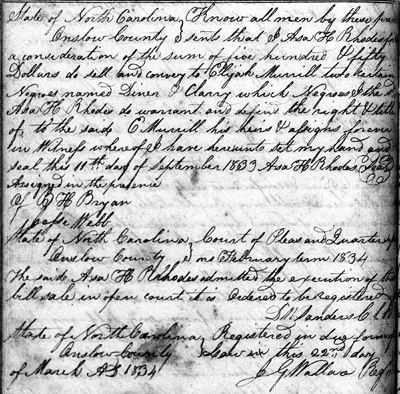 State of North Carolina } Know all men by these pre
Onslow County } sents that I Asa H Rhodes for
a consideration of the sum of five hundred & fifty
Dollars do sell and convey to Elijah Murrill two certain
Negroes named Diner & Clarry which Negroes I the s
Asa H Rhodes do warrant and defend the right & title
of to the said E Murrill his heirs & assigns forever
in Witness whereof I have hereunto set my hand and
seal this 11th day of September 1833 Asa H Rhodes Seal
Assigned in the presence
of B H Bryan
Webb
State of North Carolina } Court of Pleas and Quarter
Onslow County } ns February term 1834
The said Asa H Rhodes admitted the execution of th
bill sale in open court it is Ordered to be registered
D Sanders C
State of North Carolina } Registered in due form
Onslow County } Law in this 22nd day
of March AD 1834
J G Wallace Reg